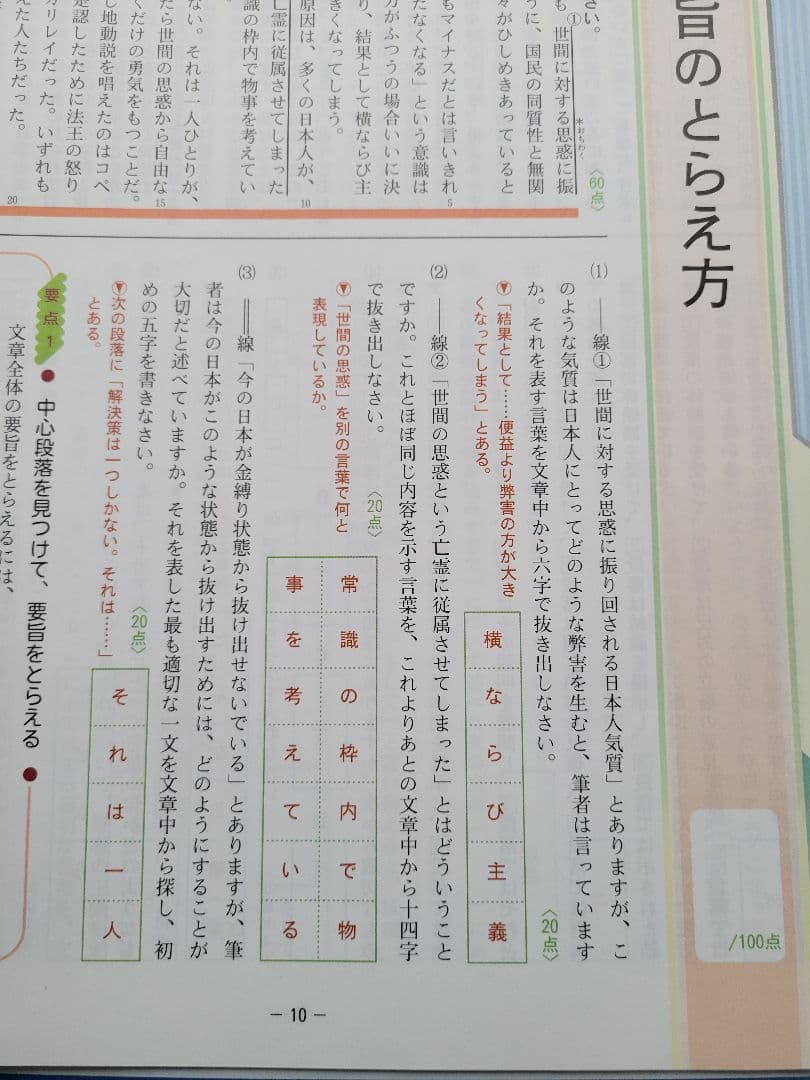 旨のとらえ方
/100点
さい。
も①世間に対する思惑に振
※おもわく
うに、国民の同質性と無関
々がひしめきあっていると
〈60点〉
もマイナスだとは言いきれ
5
たなくなる」という意識は
方がふつうの場合いいに決
り、結果として横ならび主
きくなってしまう。
原因は、多くの日本人が、
10
亡霊に従属させてしまった
識の枠内で物事を考えてい
ない。それは一人ひとりが、
たら世間の思惑から自由な
15
くだけの勇気をもつことだ。
し地動説を唱えたのはコペ
ガリレイだった。いずれも
是認したために法王の怒り
えた人たちだった。
20
(1) ――線①「世間に対する思惑に振り回される日本人気質」とありますが、こ
のような気質は日本人にとってどのような弊害を生むと、筆者は言っています
か。それを表す言葉を文章中から六字で抜き出しなさい。
〈20点〉
▼「結果として……便益より弊害の方が大き
くなってしまう」とある。
横ならび主義
(2) ――線②「世間の思惑という亡霊に従属させてしまった」とはどういうこと
ですか。これとほぼ同じ内容を示す言葉を、これよりあとの文章中から十四字
で抜き出しなさい。
〈20点〉
▼「世間の思惑」を別の言葉で何と
表現しているか。
常識の枠内で物
事を考えている
(3) ══線「今の日本が金縛り状態から抜け出せないでいる」とありますが、筆
者は今の日本がこのような状態から抜け出すためには、どのようにすることが
大切だと述べていますか。それを表した最も適切な一文を文章中から探し、初
めの五字を書きなさい。
〈20点〉
▼次の段落に「解決策は一つしかない。それは……」
とある。
それは一人
要点1
●中心段落を見つけて、要旨をとらえる●
文章全体の要旨をとらえるには、
― 10 ―